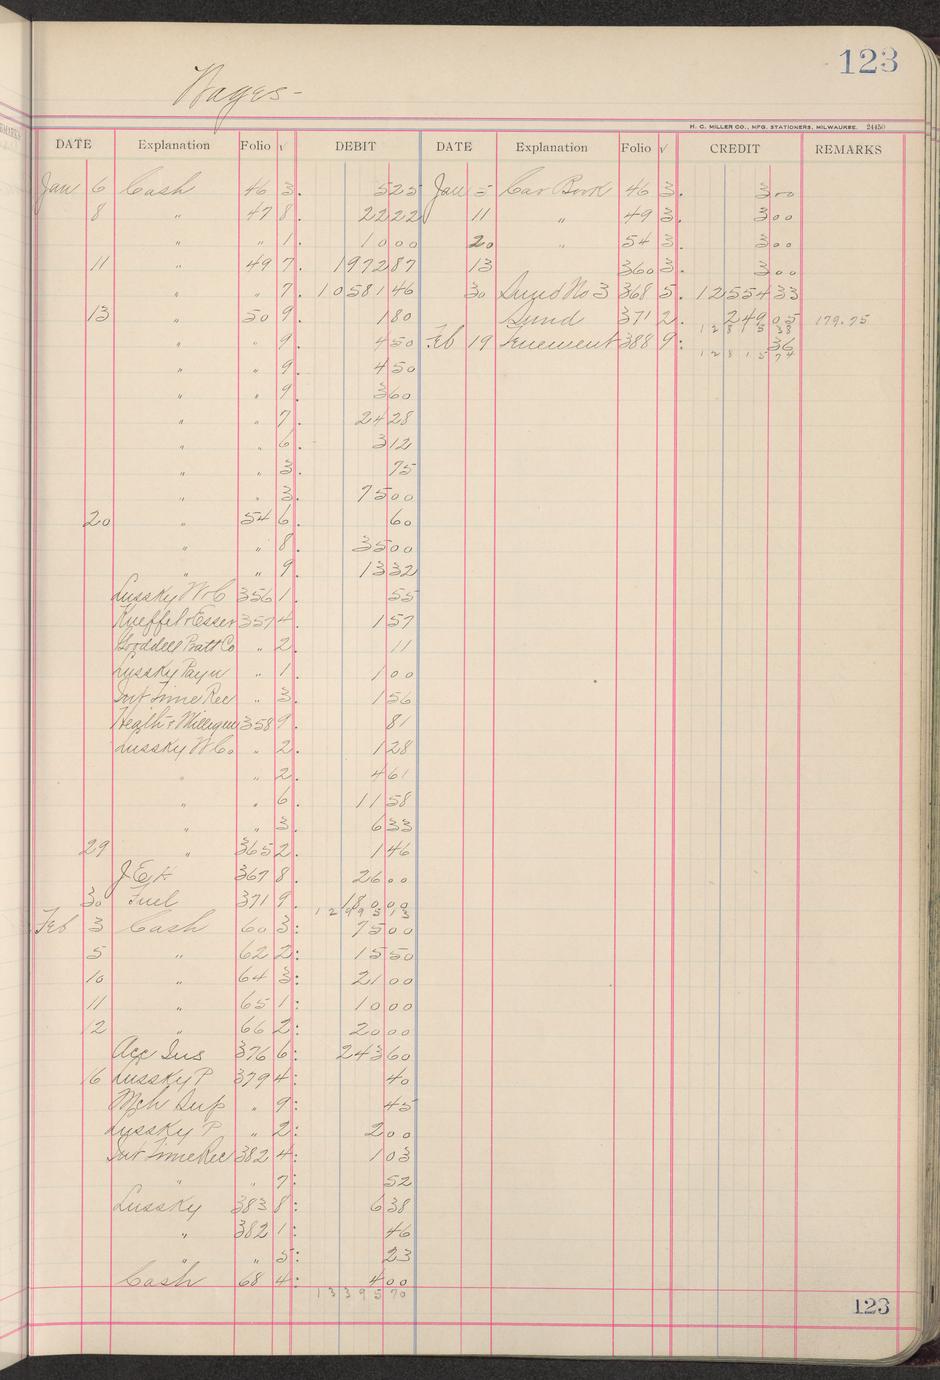 123
Wages-
H. C. MILLER CO., MFG. STATIONERS, MILWAUKEE. 24450
DATE Explanation Folio √ DEBIT DATE Explanation Folio √ CREDIT REMARKS
Jan 6 Cash 46 3. 5 25 Jan 5 Car Book 46 3. 3 00
8 " 47 8. 22 22 11 " 49 3. 3 00
" " 1. 10 00 20 " 54 3. 3 00
11 " 49 7. 1972 87 13 360 3. 3 00
" " 7. 10581 46 30 Sund No 3 368 5. 12554 33
13 " 50 9. 1 80 Sund 371 2. 249 05 179.75
12815 38
" " 9. 4 50 Feb 19 Tenement 388 9: 36
12815 74
" " 9. 4 50
" " 9. 3 60
" " 7. 24 28
" " 6. 3 12
" " 3. 75
" " 3. 75 00
20 " 54 6. 60
" " 8. 35 00
" " 9. 13 32
Lussky W C 356 1. 55
Kueffel & Esser 357 4. 1 57
Gooddell Pratt Co " 2. 11
Lussky Payn " 1. 1 00
Int Time Rec " 3. 1 56
Heath & Milligan 358 9. 81
Lussky W Co. " 2. 1 28
" " 2. 4 61
" " 6. 11 58
" " 3. 6 33
29 " 365 2. 1 46
J E K 367 8. 26 00
30 Fuel 371 9. 180 00
12995 13
Feb 3 Cash 60 3: 75 00
5 " 62 2: 15 50
10 " 64 3: 21 00
11 " 65 1: 10 00
12 " 66 2: 20 00
Acc Ins 376 6: 243 60
16 Lussky P 379 4: 40
Mch Sup " 9: 45
Lussky P " 2: 2 00
Int Time Rec 382 4: 1 03
" " 7: 52
Lussky 383 8: 6 38
" 382 1: 46
" " 5: 23
Cash 68 4: 4 00
13395 70
123